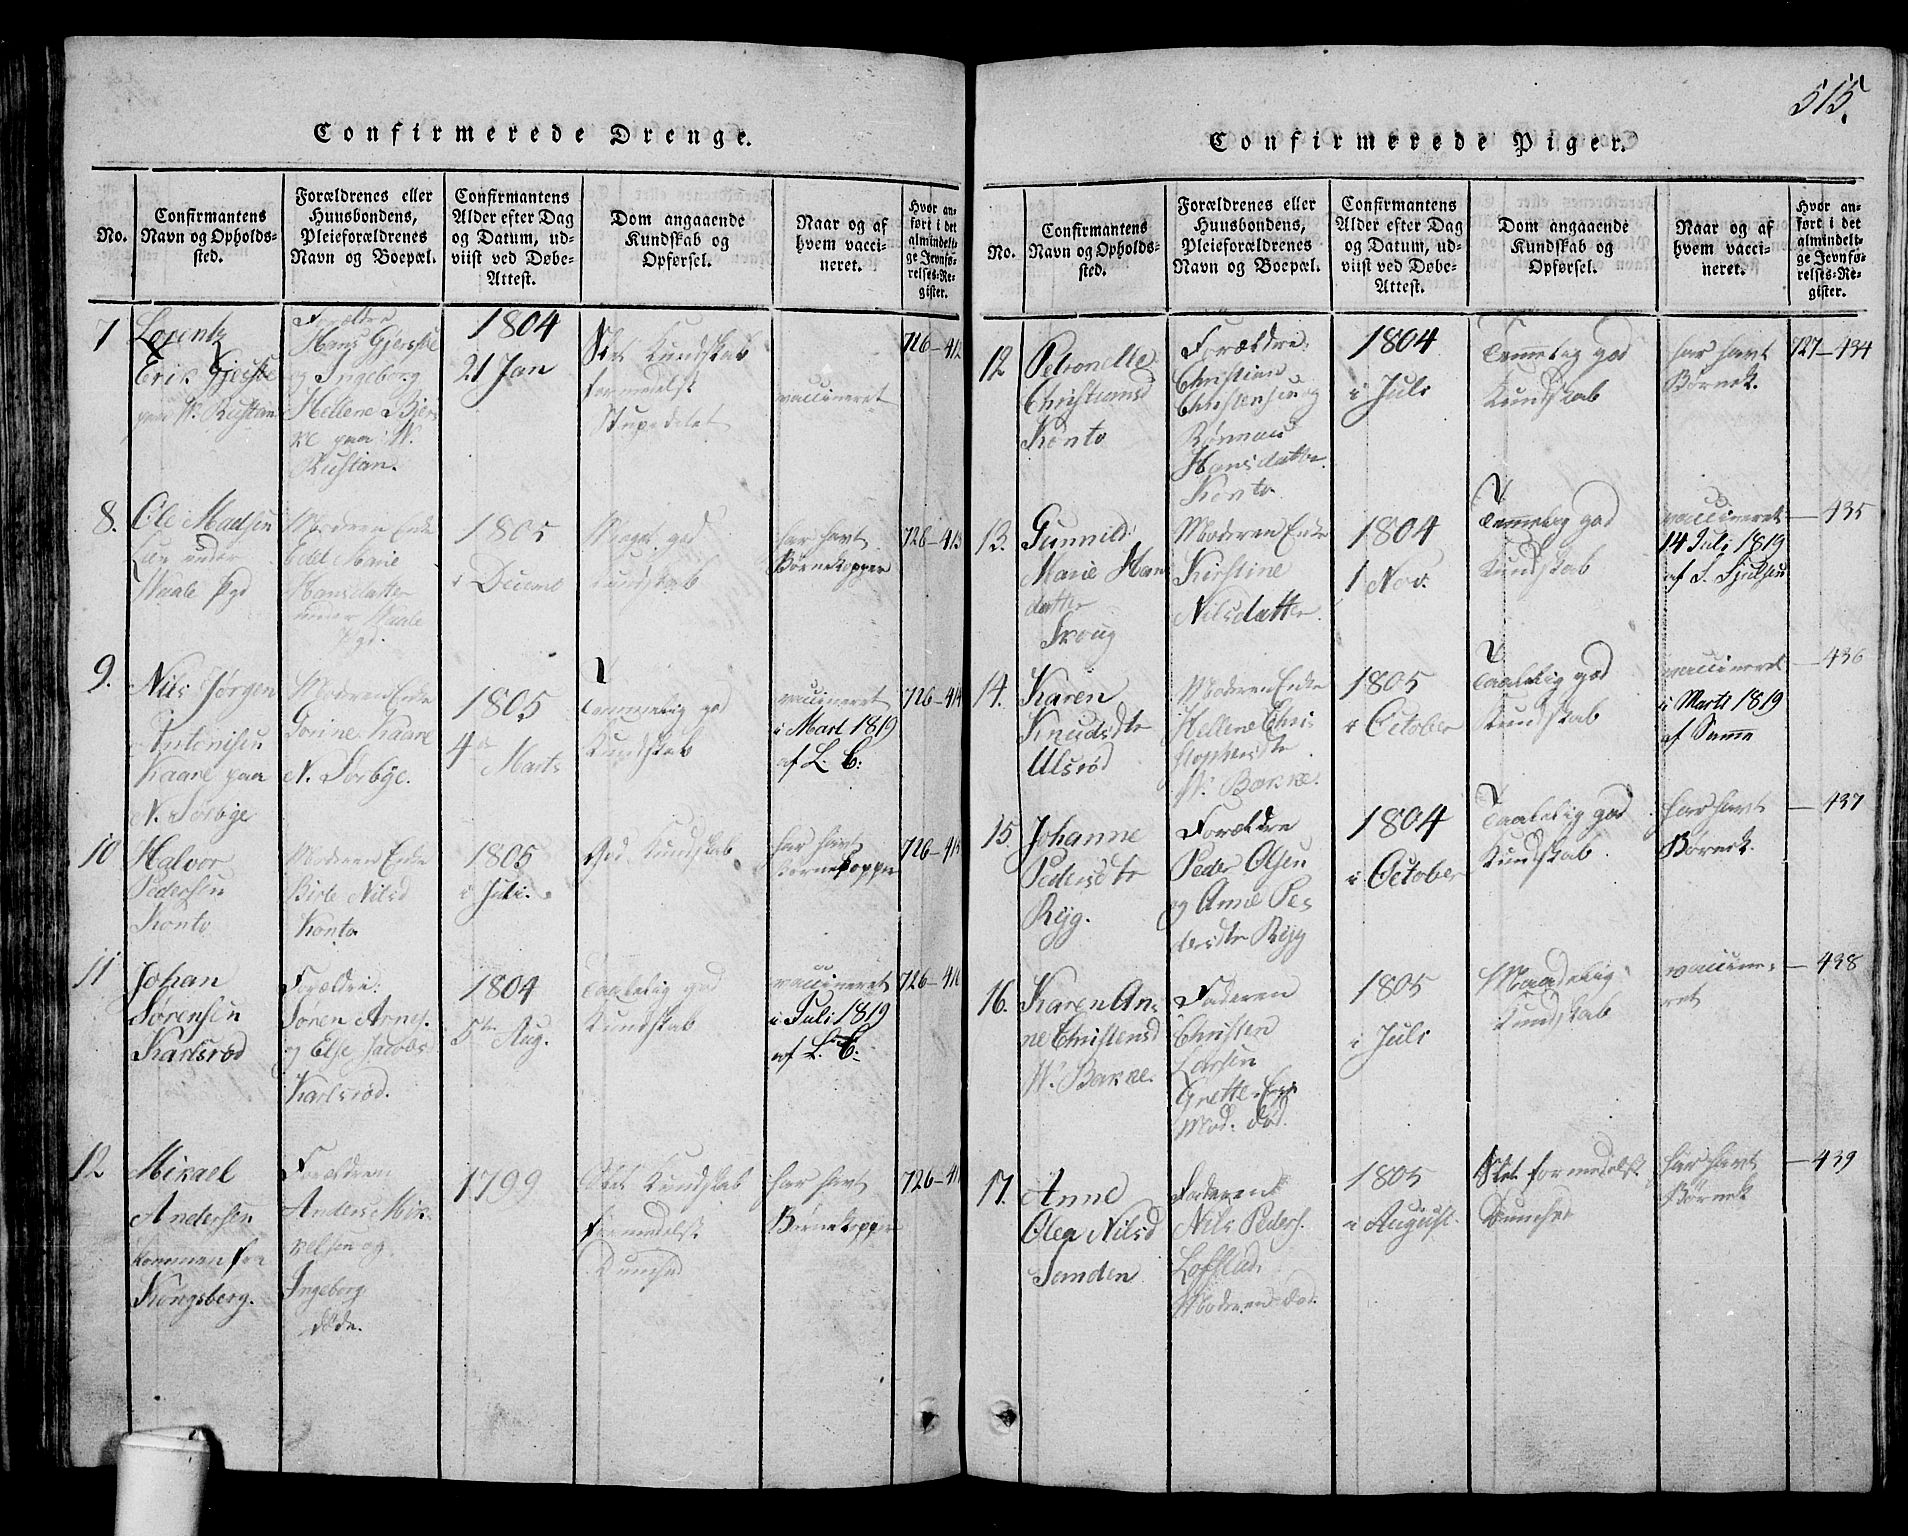 515.
Confirmerede Drenge.
No.
Confirmantens
Navn og Opholds-
sted.
Forældrenes eller
Huusbondens,
Pleieforældrenes
Navn og Boepæl.
Confirmantens
Alder efter Dag
og Datum, ud-
viist ved Døbe-
Attest.
Dom angaaende
Kundskab og
Opførsel.
Naar og af
hvem vacci-
neret.
Hvor an-
ført i det
almindeli-
ge Jevnfø-
relses-Re-
gister.
7
Lorentz
Erik Gjerske
paa N. Rustan
Forældre
Hans Gjerske
og Ingeborg
Hellene
paa N.
Rustan.
1804
21 Jan
Slet Kundskab
formedelst
Stupedelet
vaccineret
726-412
8.
Ole Madsen
Lien under
Waale Pgd
Moderen Enke
Edel Marie
Hansdatter
under Waale
Pgd.
1805
i Decemb
Meget god
Kundskab
har havt
Børnekopper
726-413
9.
Nils Jørgen
Antonisen
Kaare paa
N. Sørbye
Moderen Enke
Gorine Kaare
N. Sørbye.
1805
4de Marts
Temmelig god
Kundskab
vaccineret
i Mart 1819
af L. C:
726-414
10
Halvor
Pedersen
Konto
Moderen Enke
Birte Nilsd
Konto
1805
i Juli.
God Kundskab
har havt
Børnekopper
726-415
11
Johan
Sørensen
Karlsrød
Forældre:
Søren Arnes.
og Else Jacobs
Karlsrød.
1804
5te Aug.
Taalelig god
Kundskab
vaccineret
i Juli 1819
af L. C:
726-416
12
Mikael
Andersen
kommen fra
Kongsberg.
Forældrene
Anders Mik-
kelsen og
Ingeborg
døde.
1799
Slet Kundskab
formedelst
Dumhed
har havt
Børnekopper
726-417
Confirmerede Piger.
No.
Confirmantens
Navn og Opholds-
sted.
Forældrenes eller
Huusbondens,
Pleieforældrenes
Navn og Boepæl.
Confirmantens
Alder efter Dag
og Datum, ud-
viist ved Døbe-
Attest.
Dom angaaende
Kundskab og
Opførsel.
Naar og af
hvem vacci-
neret.
Hvor an-
ført i det
almindeli-
ge Jevnfø-
relses-Re-
gister.
12
Petronelle
Christiansd
Konto
Forældre:
Christian
Christensen og
Rønnau
Hansdatter
Konto
1804
i Juli
Temmelig god
Kundskab
har havt
Børnek.
727-434
13.
Gunnild
Marie Han
datter
Moderen Enke
Kirstine
Nilsdatter.
1804
1 Nov.
Temmelig god
Kundskab
vaccineret
14 Juli 1819
af S. Sjulsen
-435
14.
Karen
Knudsdtr
Ulsrød
Moderen Enke
Hellene Chri-
stophersdtr
N. Bakke.
1805
i October
Taalelig god
Kundskab
vaccineret
i Marts 1819
af Samme
-436
15.
Johanne
Pedersdtr
Ryg.
Forældre
Peder Olsen
og Anne Pe-
dersdtr Ryg
1804
i October
Taalelig god
Kundskab
har havt
Børnek.
-437
16.
Karen An-
ne Christensd
N. Bakke.
Faderen
Christen
Larsen
Mod. død.
1805
i Juli
Maadelig
Kundskab
vaccine-
ret
-438
17.
Anne
Olea Nilsd
Sanden
Faderen
Nils Peders.
Moderen død.
1805
i August.
Slet formedelst
Dumhed
har havt
Børnek
-439